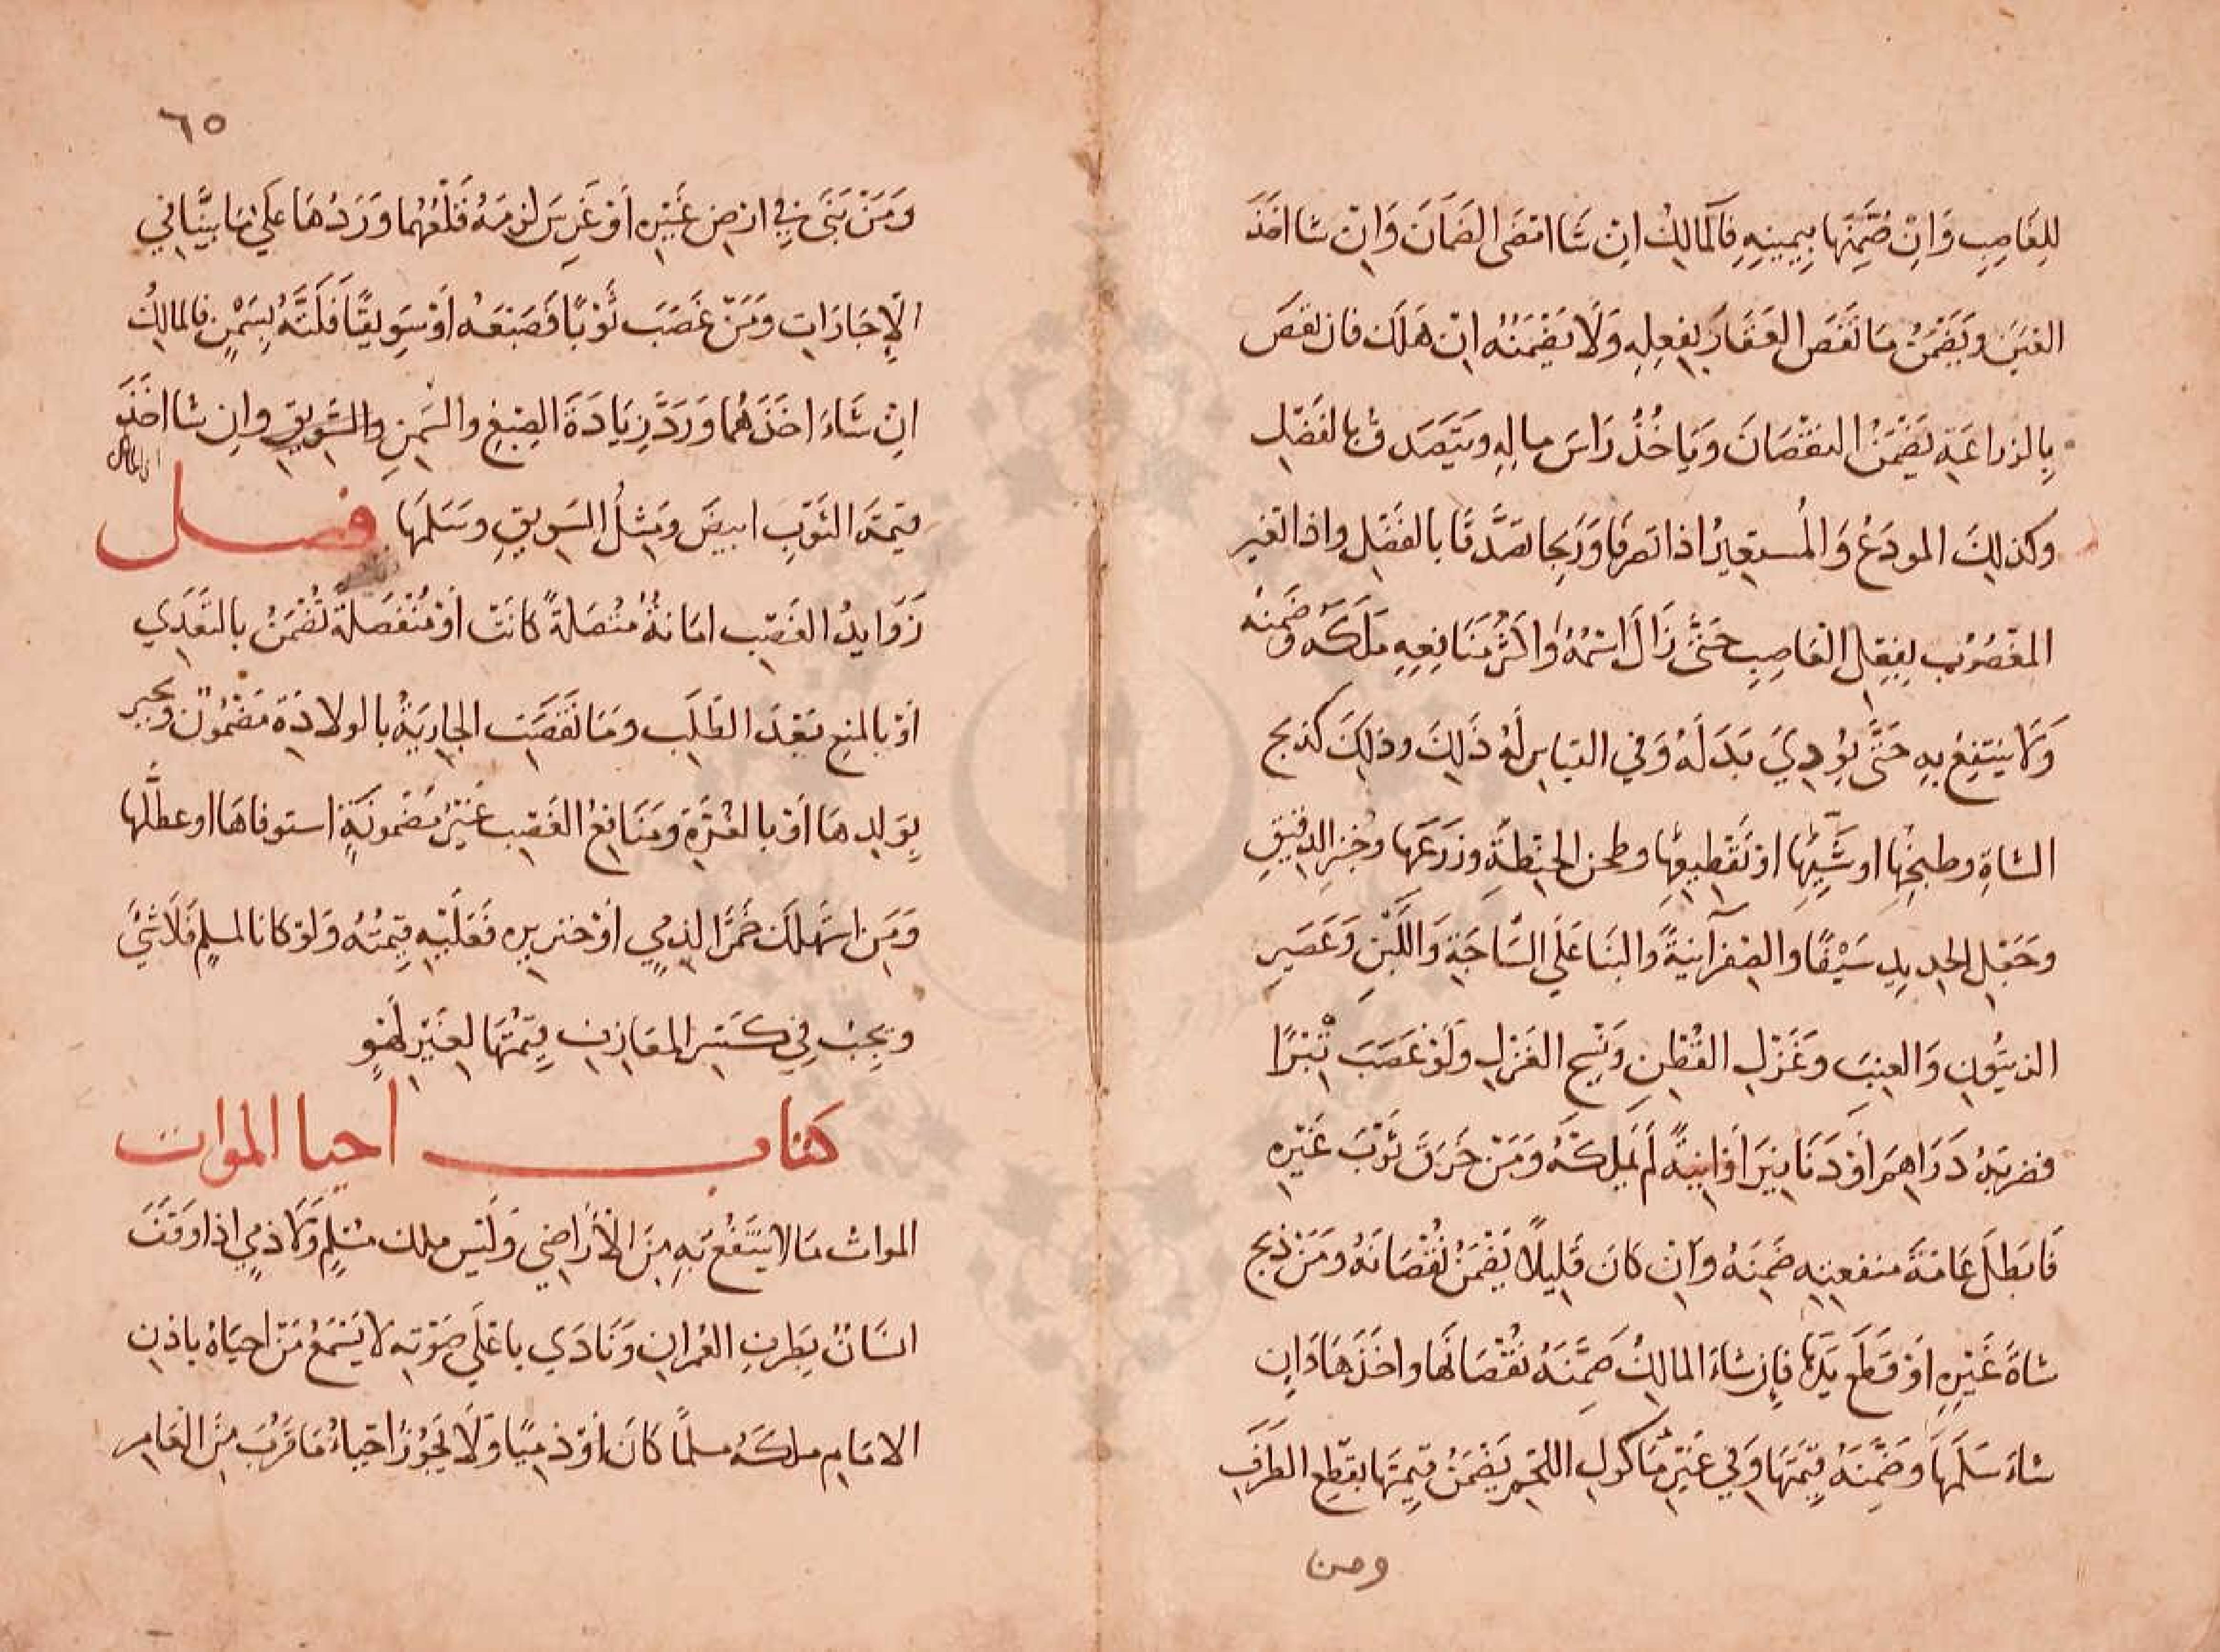 للغَاصِبِ وَاِنْ ضَمَّنَهَا بِيَمِينِهِ فَالمَالِكُ اِنْ شَا امْضَى الضَّمَانَ وَاِنْ شَا اخَذَ
العَيْنَ وَيَضْمَنُ مَا نَقَصَ العَقَارَ بِفِعلِهِ وَلَا يَضْمَنُهُ اِنْ هَلَكَ فان نقصَ
بِالزراعَةِ يَضْمَنُ النقْصَانَ وَيَاخُذُ رَاسَ مالِهِ وَيَتَصَدق بالفَضْلِ
وكذلِكَ المودَعُ وَالمُستعِيرُ اذا تصرفَا وَرَبِحَا تصَدَّقَا بالفَضْلِ واذا تغير
المغْصُوْب بِفِعْلِ الغاصِبِ حَتَّى زَالَ اسْمُهُ وَاكثرُ مَنَافِعِهِ مَلَكَه وَضَمِنَهُ
وَلَا يَنتفِعُ بِهِ حَتَّى يُؤدِيَ بَدَلَهُ وَفي القيَاسِ لَهُ ذَلِكَ وذلِكَ كذبحِ
الشاةِ وطبخِهَا او شَيِّهَا اوْ تَقْطِيعِهَا وطحن الحِنْطَةِ وزَرْعِهَا وخُبزِ الدقيقِ
وجَعْلِ الحديدِ سَيْفًا والصُفْرِ آنيَةً والبنَا عَلَى السَّاجَةِ وَاللَّبِنِ وَعَصيرِ
الزيتونِ وَالعِنَبِ وغَزْلِ القُطْنِ وَنَسْجِ الغَزْلِ وَلَوْ غَصَبَ تِبْرًا
فضربَهُ دَرَاهِمَ اَوْ دَنَانِيرَ اَوْ انِيَةً لَمْ يَملِكْهُ وَمَنْ خَرَقَ ثَوْبَ غَيْرِهِ
فَابطَلَ عَامَةَ منفعتِهِ ضَمِنَهُ وَاِنْ كَانَ قَلِيلًا يَضْمَنُ نُقْصَانَهُ ومَنْ ذبحَ
شاةَ غَيْرِهِ اَوْ قَطَعَ يَدَهَا فَاِن شاءَ المالِكُ ضَمَّنَهُ نُقْصَانَهَا واخَذَهَا وَاِن
شاءَ سَلَمَهَا وَضَمَّنَهُ قِيمَتَهَا وَفي غَيْرِ مَاكولِ اللحْمِ يَضْمَنُ قِيمَتَهَا بقطعِ الطَرَفِ
ومن
٦٥
وَمَنْ بَنَى فِي ارْضِ غَيْرِهِ اَوْ غَرسَ لزمَهُ قَلْعُهُما وَرَدُهَا عَلى مَا بيَّنا في
الاِجَارَاتِ وَمَنْ غَصَبَ ثَوْبًا فَصَبَغَهُ اَوْ سَوِيقًا فَلَتَّهُ بِسَمْنٍ فالمالِكُ
اِنْ شَاءَ اخَذَهُمَا وَرَدَّ زِيَادَةَ الصِبْغِ والسَمنِ والسَّوِيقِ وان شا اخَذَ
قِيمَةَ الثَوْبِ ابيضَ وَمِثْلَ السَوِيقِ وسَلمَهَا فصل
زَوَايدُ الغَصْبِ امَانةٌ مُتصَلةً كانَتْ اَوْ مُنْفَصَلةً تُضْمَنُ بالتَعَدِي
اَوْ بالمنعِ بَعْدَ الطَلَبِ ومَا نَقَصَتِ الجاريَةُ بالولادَةِ مَضْمُونٌ ويجبر
بِوَلدِهَا اَوْ بالغُرَّةِ ومَنَافِعُ الغَصْبِ غَيْرُ مَضْمونَةٍ استوفاهَا اوعطلَّهَا
وَمَنِ اسْتَهلَكَ خَمْرَ الذِمِيِ اَوْ خنزيره فَعَلَيْهِ قِيمَتُهُ وَلَوْ كانا لمسلِمٍ فَلَا شَيْءَ
ويجبُ فِي كَسْرِ المعَازفِ قِيمَتُهَا لغيْرِ لَهْوٍ
كتاب احيا الموات
المواتُ مَا لا يُنْتَفَعُ بِهِ مِنَ الاَرَاضي وَلَيْس مِلك مُسْلِمٍ وَلَا ذمِيٍ اذا وَقَفَ
انسَانٌ بِطَرفِ العُمرانِ وَنَادَي باعْلَى صَوْتِهِ لَا يُسْمَعُ مَنْ احيَاهُ باذنِ
الامَامِ ملكَهُ مسلمًا كَانَ اَوْ ذميًا وَلَا يَجُوْزُ احْيَاءُ مَا قَرُبَ مِنَ العَامِرِ